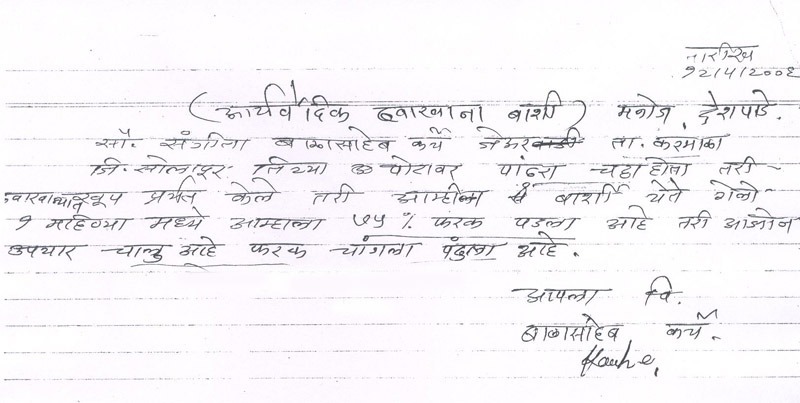 तारीख
१२/५/२००६
(आर्युर्वेदिक दवाखाना बार्शी) मनोज देशपांडे.
सौ. संगीता बाळासाहेब कर्चे जेऊर ता. करमाळा
जि. सोलापूर. तिच्या पोटावर पांढरा चट्टा होता तरी
खूप प्रयत्न केले तरी आम्हीला बार्शी येते गेलो
१ महिण्या मध्ये आम्हाला ७५% फरक पडला आहे तरी आजोन
उपचार चालु आहे फरक चांगला पडला आहे.
आपला वि.
बाळासाहेब कर्चे.